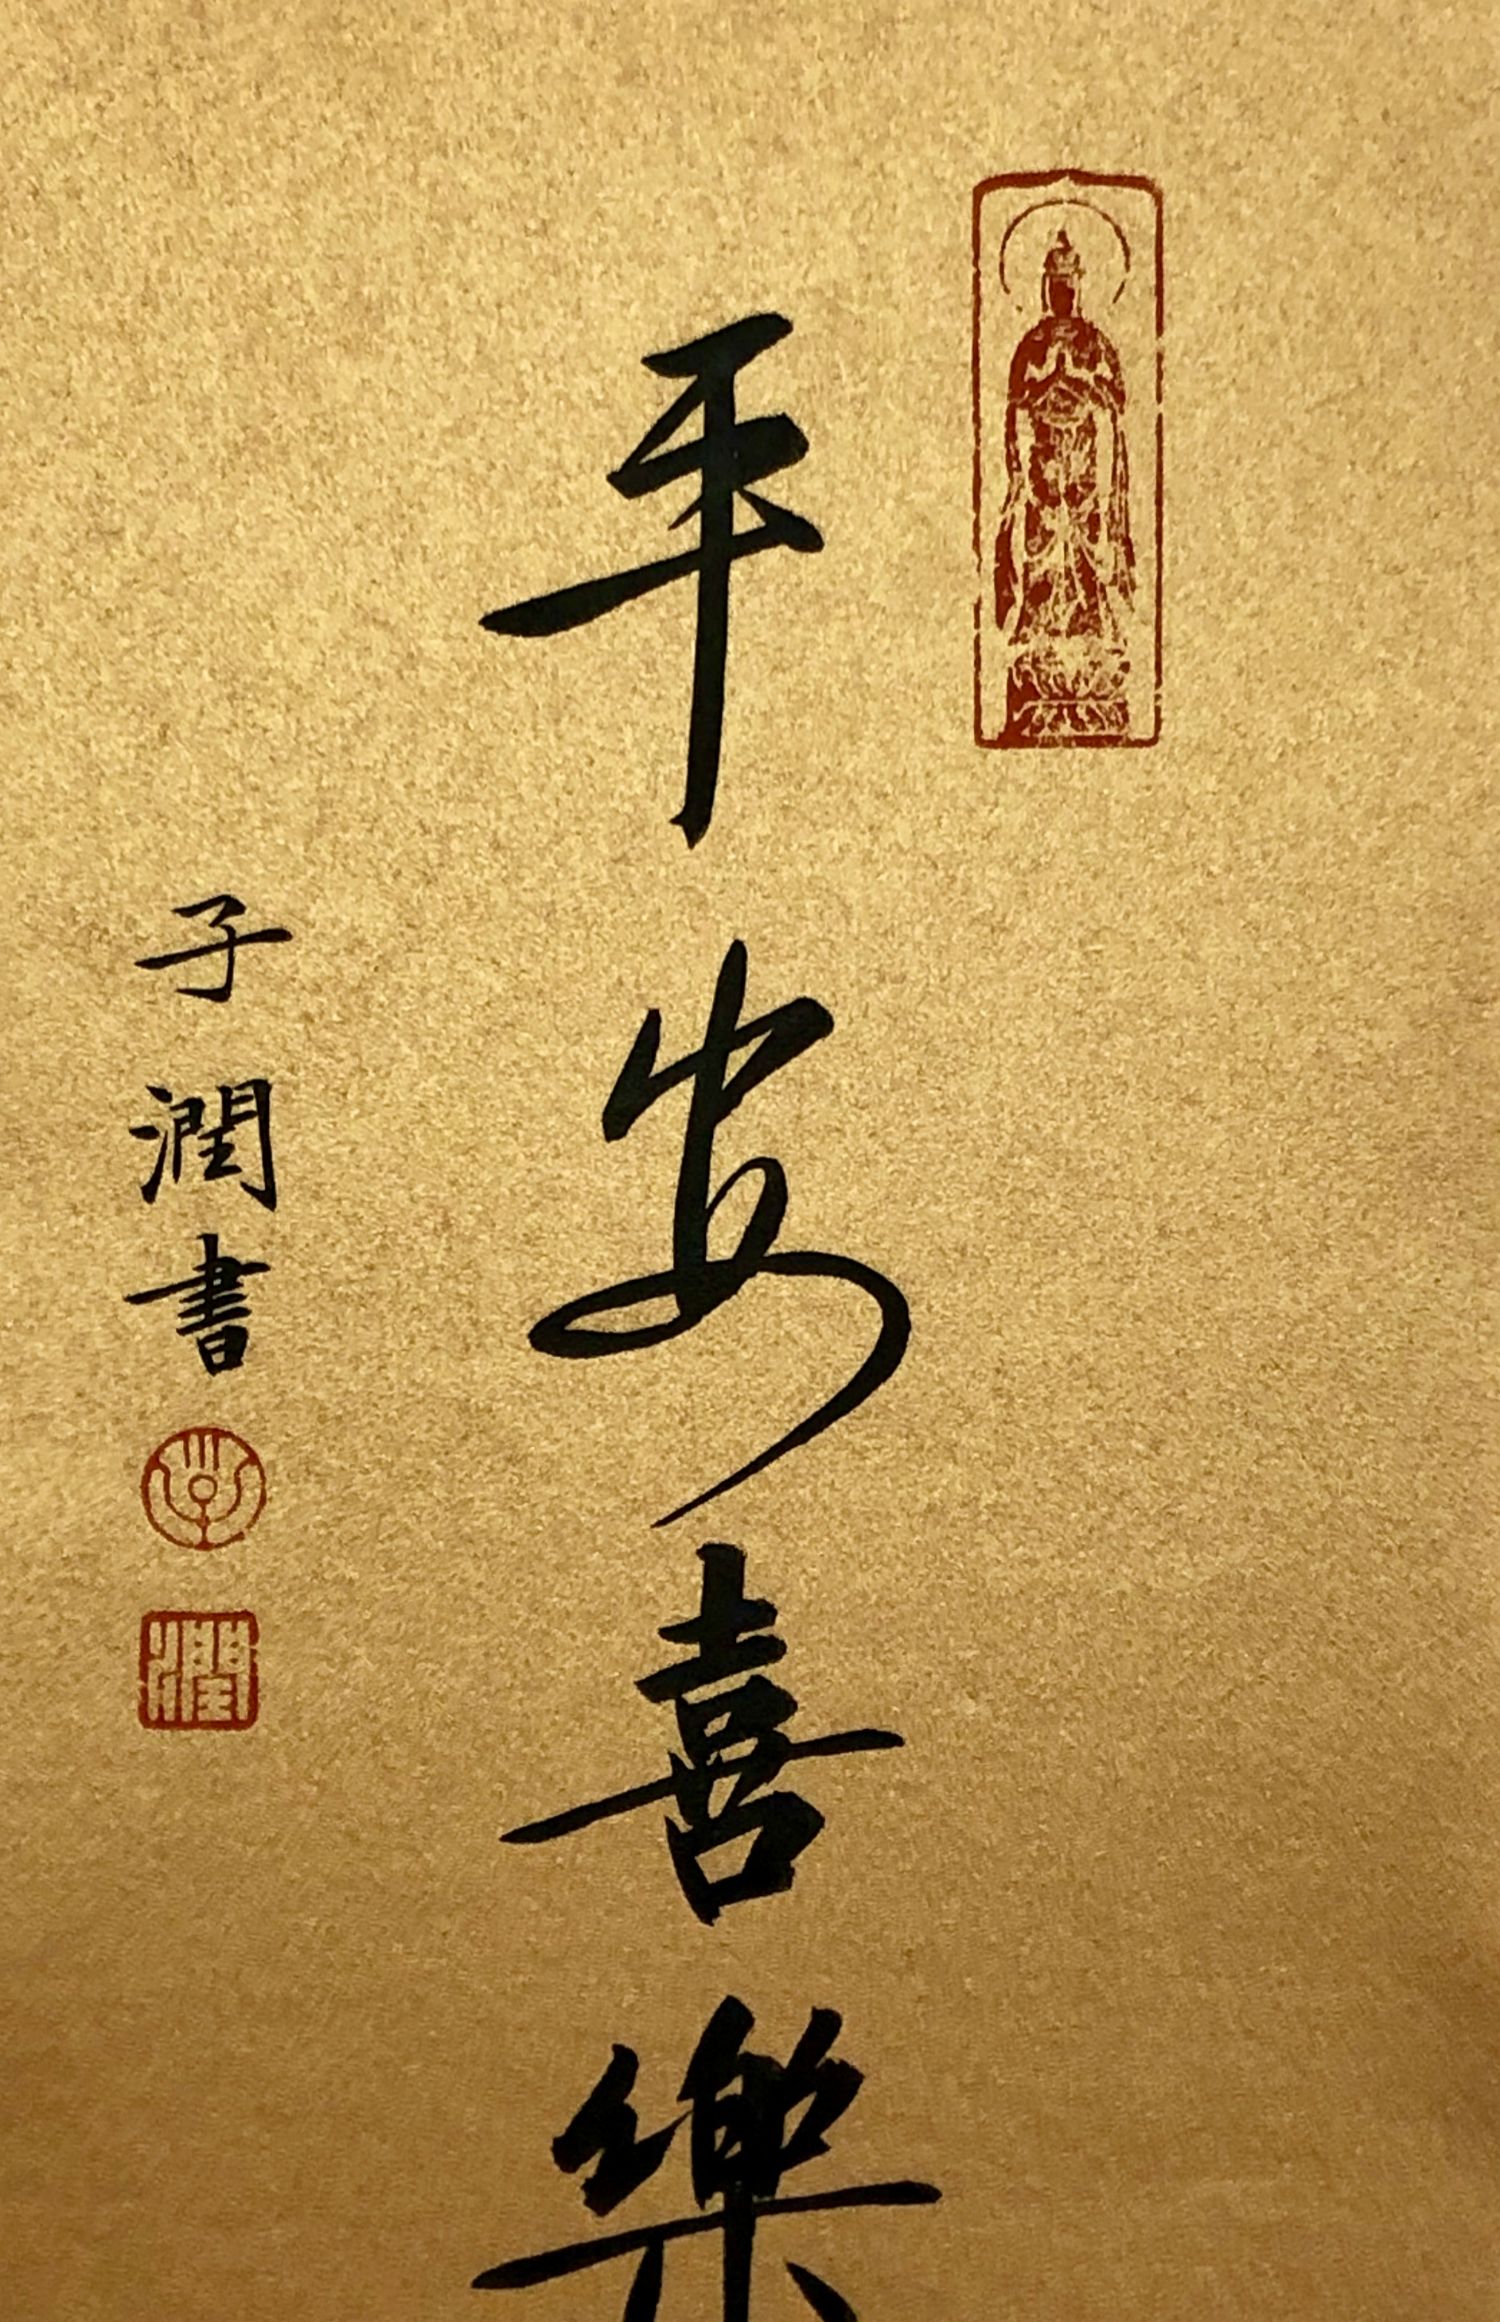 平安喜樂
子潤書
潤